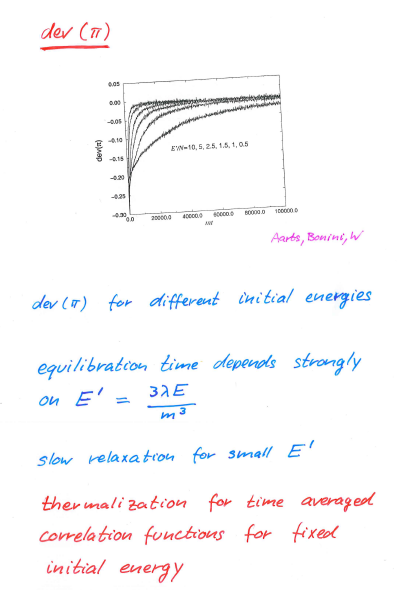 dev (π)
0.05
0.00
-0.05
-0.10
-0.15
-0.20
-0.25
-0.30
dev(π)
E'/N=10, 5, 2.5, 1.5, 1, 0.5
0.0 20000.0 40000.0 60000.0 80000.0 100000.0
mt
Aarts, Bonini, W
dev (π) for different initial energies
equilibration time depends strongly
on E' = 3λE / m³
slow relaxation for small E'
thermalization for time averaged
correlation functions for fixed
initial energy